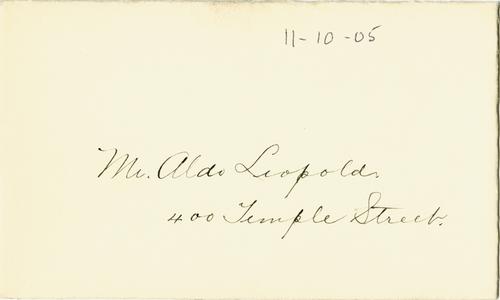 11-10-05
Mr. Aldo Leopold.
400 Temple Street.